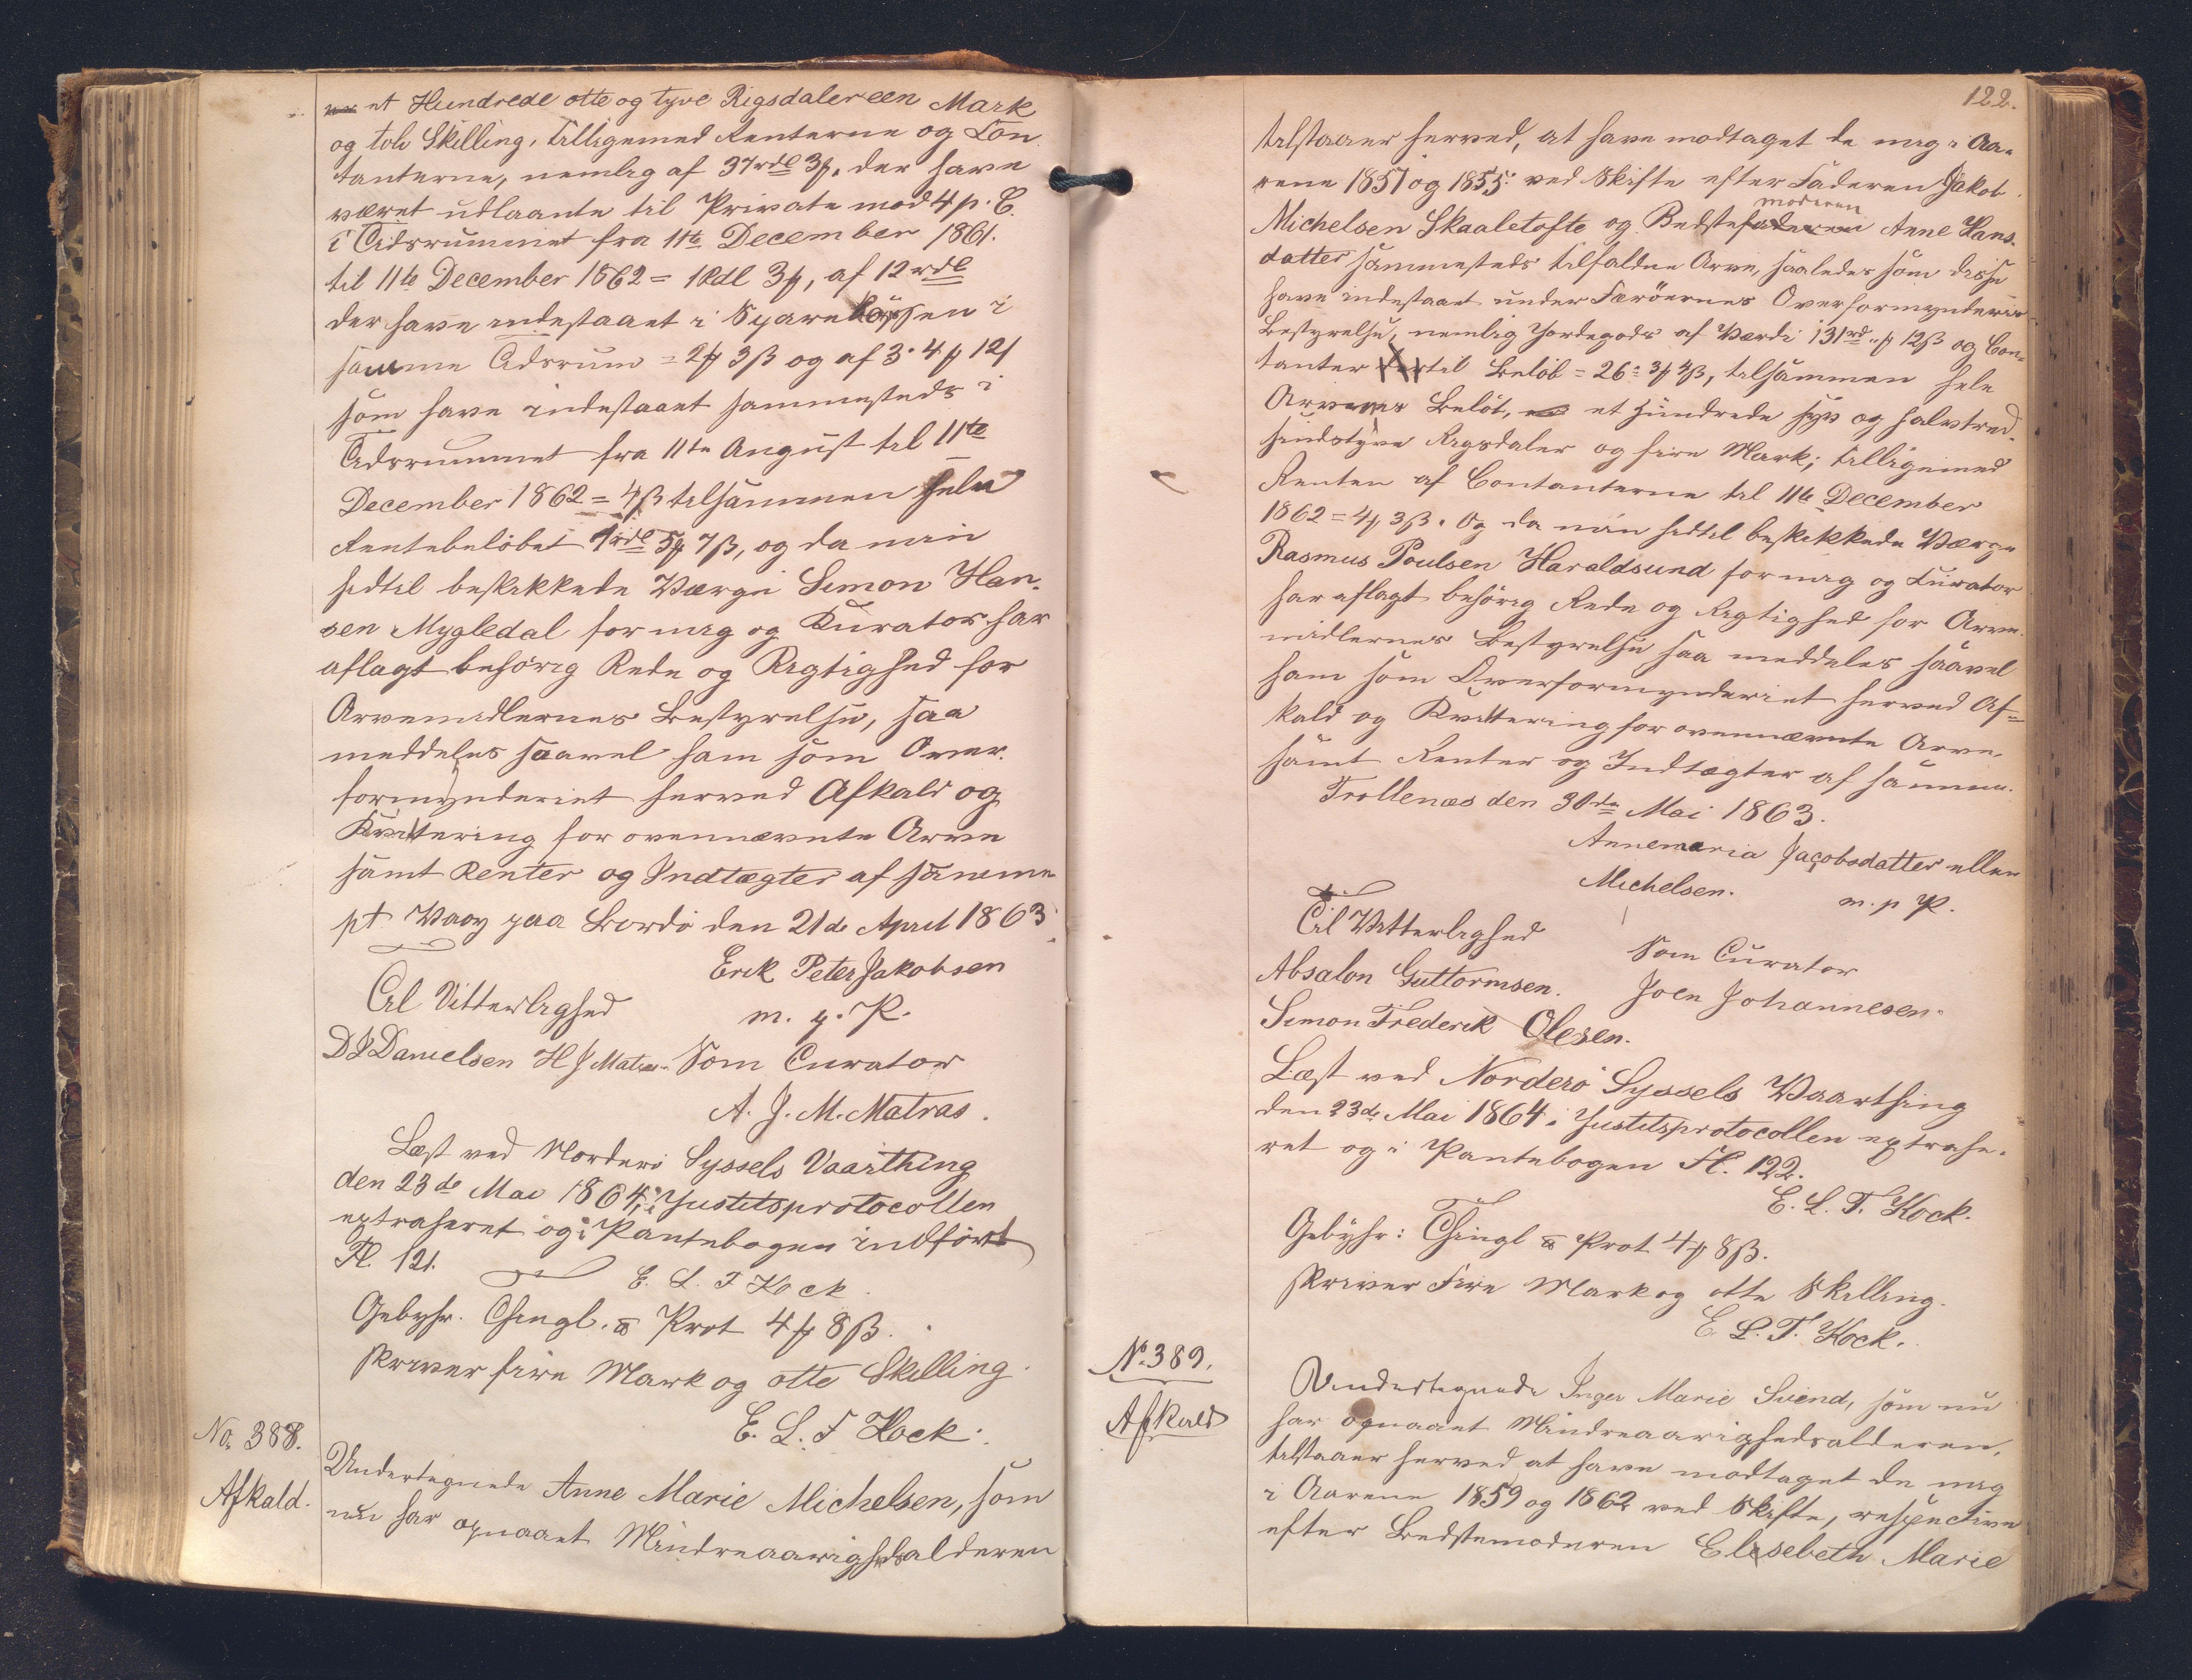 et Hundrede otte og tyve Rigsdaler een Mark
og tolv Skilling, tilligemed Renterne og Con
tanterne, nemlig af 37rdl 3ƒ, der have
været udlaante til Private mod 4 p. C.
i Tidsrummet fra 11te December 1861.
til 11te December 1862 = 1Rdl 3ƒ, af 12rdl
der have indestaaet i Sparekassen i
samme Tidsrum = 2ƒ 3ß og af 3. 4ƒ 12ß
som have indestaaet sammesteds i
Tidsrummet fra 11te August til 11te
December 1862 = 4ß tilsammen hele
Rentebeløbet 1rdl 5ƒ 7ß, og da min
hidtil beskikkede Værge Simon Han-
sen Mygledal for mig og Kurator har
aflagt behørig Rede og Rigtighed for
Arvemidlernes Bestyrelse, saa
meddeles saavel ham som Over-
formynderiet herved Afkald og
Kvittering for ovennævnte Arve
samt Renter og Indtægter af samme
pt Vaag paa Bordø den 21de April 1863.
Erik Peter Jakobsen
Til Vitterlighed
m. p. P.
D J Danielsen H J Matras. Som Curator
A. J. M. Matras.
Læst ved Norderø Syssels Vaarthing
den 23de Mai 1864, i Justitsprotocollen
extraheret og i Pantebogen indført
Fl. 121.
E. L. T Kock.
Gebyhr. Thingl. & Prot 4ƒ 8ß.
skriver fire Mark og otte Skilling.
E. L. T Kock.
No. 388.
Afkald.
Undertegnede Anne Marie Michelsen, som
nu har opnaaet Mindreaarighedsalderen
122.
tilstaaer herved, at have modtaget de mig i Aa-
rene 1851 og 1855 ved Skifte efter Faderen Jakob
Michelsen Skaaletofte og Bedstefaderen moderen Anne Hans-
datter sammesteds tilfaldne Arve, saaledes som disse
have indestaaet under Færøernes Overformynderies
Bestyrelse, nemlig Jordegods af Værdi 131rd „ƒ 12ß og Con-
tanter til Beløb = 26. 3ƒ 4ß, tilsammen hele
Arvens Beløb, et hundrede syv og halvtred-
sindstyve Rigsdaler og fire Mark; tilligemed
Renten af Contanterne til 11te December
1862 = 4ƒ 3ß. Og da min hidtil beskikkede Værge
Rasmus Poulsen Haraldsund for mig og Kurator
har aflagt behørig Rede og Rigtighed for Arve-
midlernes Bestyrelse saa meddeles saavel
ham som Overformynderiet herved Af-
kald og Kvittering for ovennævnte Arve,
samt Renter og Indtægter af samme.
Trollenæs den 30de Mai 1863.
Annemaria Jacobsdatter eller
Michelsen. m. p P.
Til Vitterlighed
Som Curator
Absalon Guttormsen.
Joen Johannesen.
Simon Frederik Olesen.
Læst ved Norderø Syssels Vaarthing
den 23de Mai 1864 i Justitsprotocollen extrahe-
ret og i Pantebogen Fl. 122.
E. L. T. Kock.
Gebyhr: Thingl & Prot 4ƒ 8ß.
skriver Fire Mark og otte Skilling.
E. L. T. Kock.
No. 389.
Afkald
Undertegnede Inger Marie Svend, som nu
har opnaaet Mindreaarighedsalderen,
tilstaaer herved at have modtaget de mig
i Aarene 1859 og 1862 ved Skifte, respective
efter Bedstemoderen Elisebeth Marie